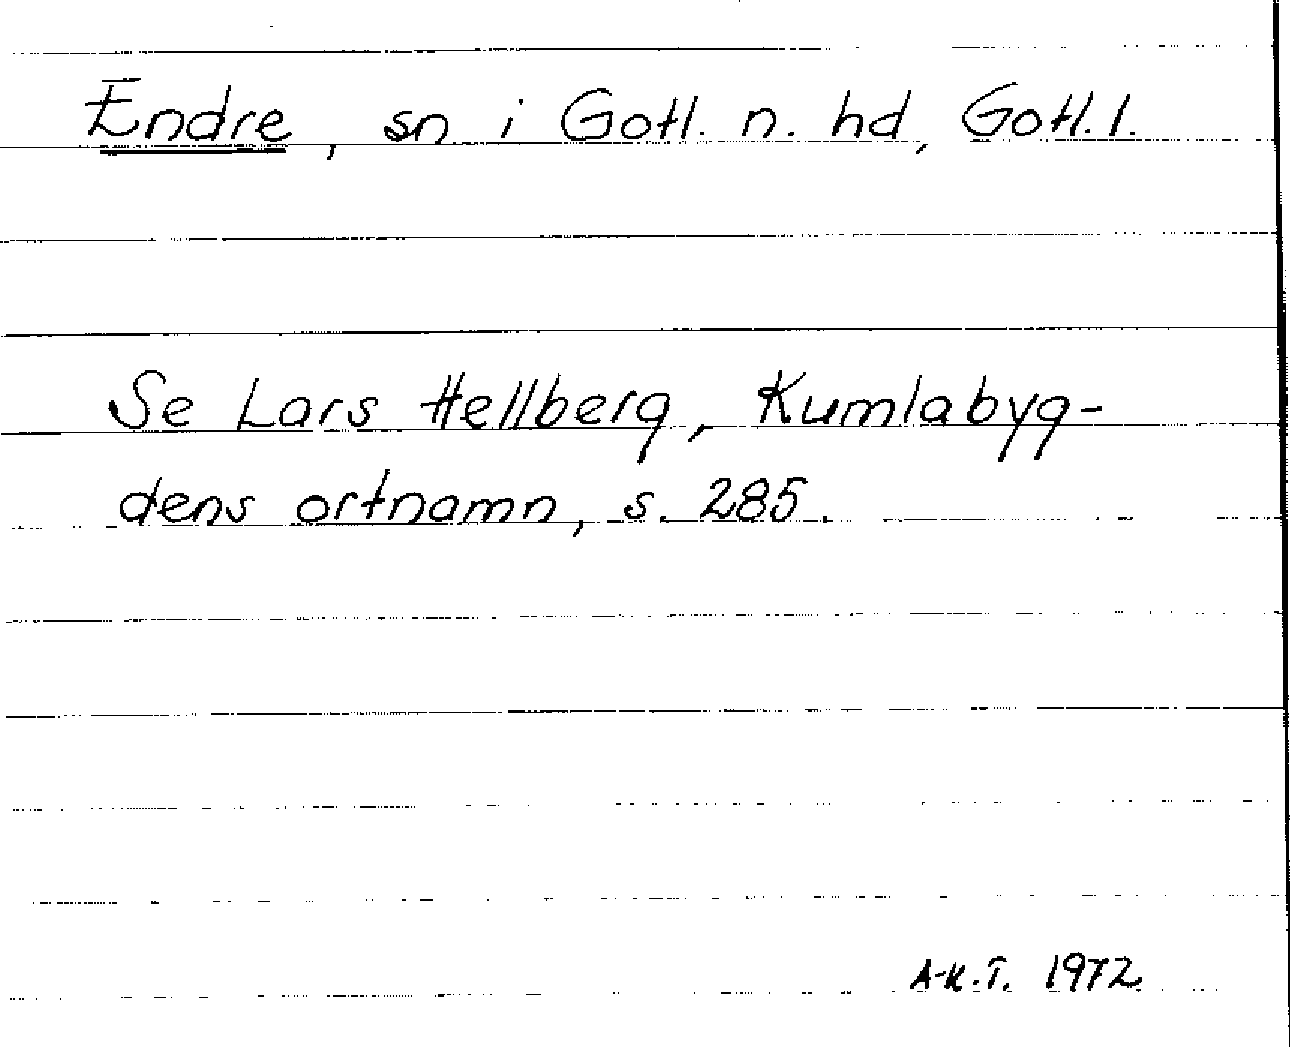 Endre, sn i Gotl. n. hd, Gotl. l.
Se Lars Hellberg, Kumlabyg-
dens ortnamn, s. 285.
A-K.T. 1972